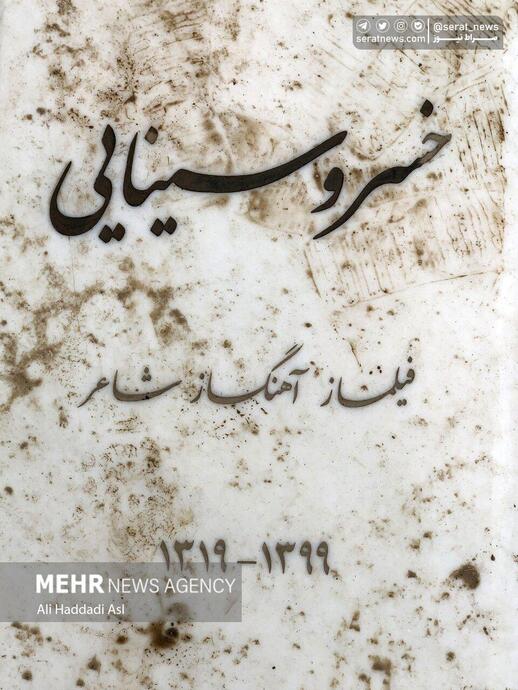 @serat_news
seratnews.com صراط نیوز
خسرو سینایی
فیلمساز آهنگساز شاعر
۱۳۱۹-۱۳۹۹
MEHR NEWS AGENCY
Ali Haddadi Asl